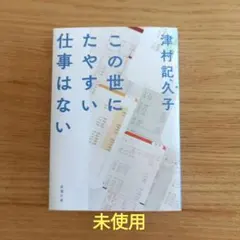 津村記久子
この世に
たやすい
仕事はない
新潮文庫
未使用